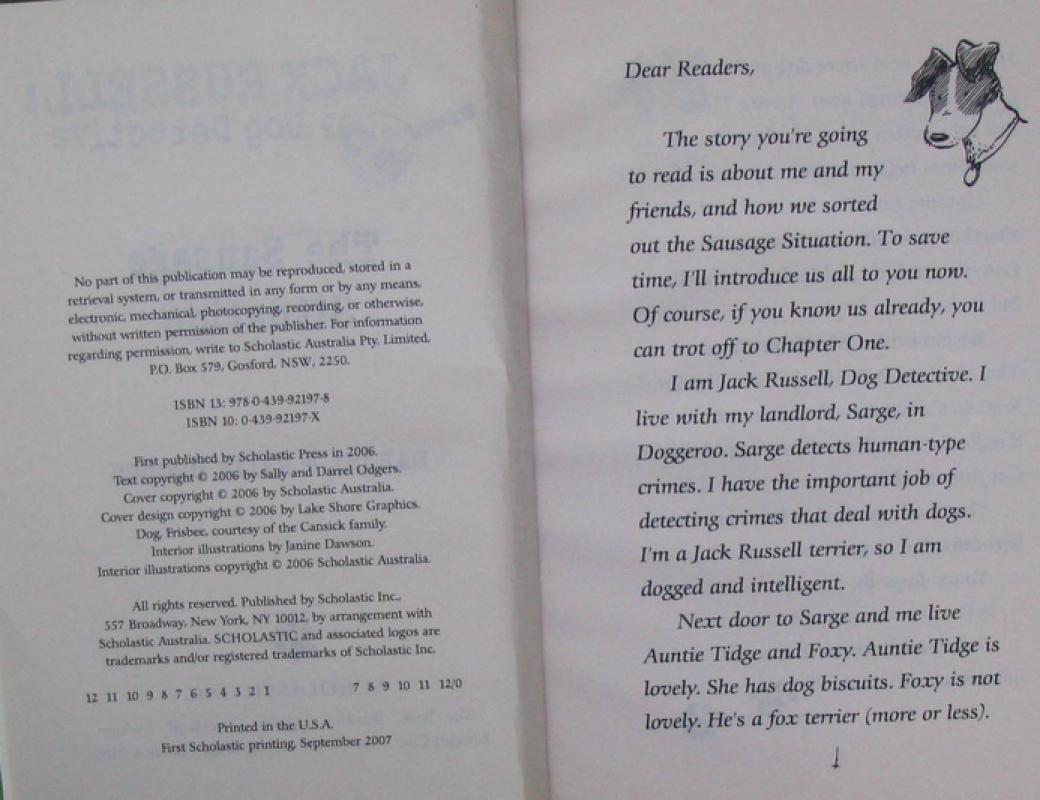 No part of this publication may be reproduced, stored in a
retrieval system, or transmitted in any form or by any means,
electronic, mechanical, photocopying, recording, or otherwise,
without written permission of the publisher. For information
regarding permission, write to Scholastic Australia Pty. Limited,
P.O. Box 579, Gosford, NSW, 2250.
ISBN 13: 978-0-439-92197-8
ISBN 10: 0-439-92197-X
First published by Scholastic Press in 2006.
Text copyright © 2006 by Sally and Darrel Odgers.
Cover copyright © 2006 by Scholastic Australia.
Cover design copyright © 2006 by Lake Shore Graphics.
Dog, Frisbee, courtesy of the Cansick family.
Interior illustrations by Janine Dawson.
Interior illustrations copyright © 2006 Scholastic Australia.
All rights reserved. Published by Scholastic Inc.,
557 Broadway, New York, NY 10012, by arrangement with
Scholastic Australia. SCHOLASTIC and associated logos are
trademarks and/or registered trademarks of Scholastic Inc.
12 11 10 9 8 7 6 5 4 3 2 1 7 8 9 10 11 12/0
Printed in the U.S.A.
First Scholastic printing, September 2007
Dear Readers,
The story you're going
to read is about me and my
friends, and how we sorted
out the Sausage Situation. To save
time, I'll introduce us all to you now.
Of course, if you know us already, you
can trot off to Chapter One.
I am Jack Russell, Dog Detective. I
live with my landlord, Sarge, in
Doggeroo. Sarge detects human-type
crimes. I have the important job of
detecting crimes that deal with dogs.
I'm a Jack Russell terrier, so I am
dogged and intelligent.
Next door to Sarge and me live
Auntie Tidge and Foxy. Auntie Tidge is
lovely. She has dog biscuits. Foxy is not
lovely. He's a fox terrier (more or less).